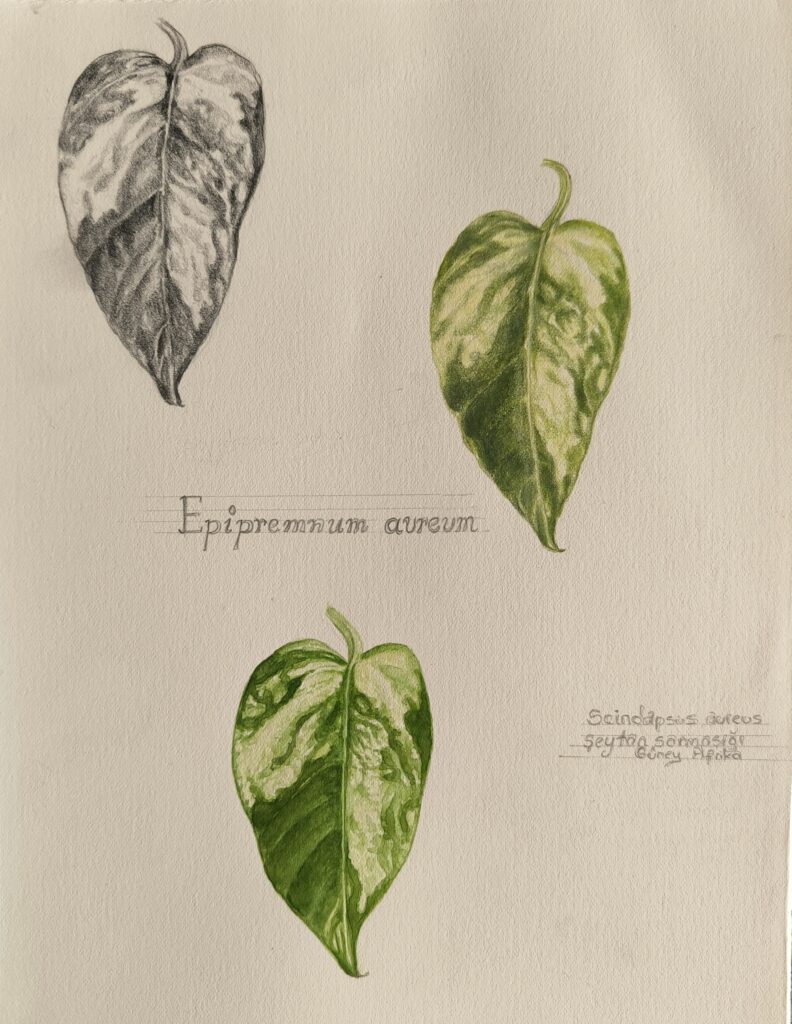 Epipremnum aureum
Scindapsus aureus
Şeytan sarmaşığı
Güney Afrika